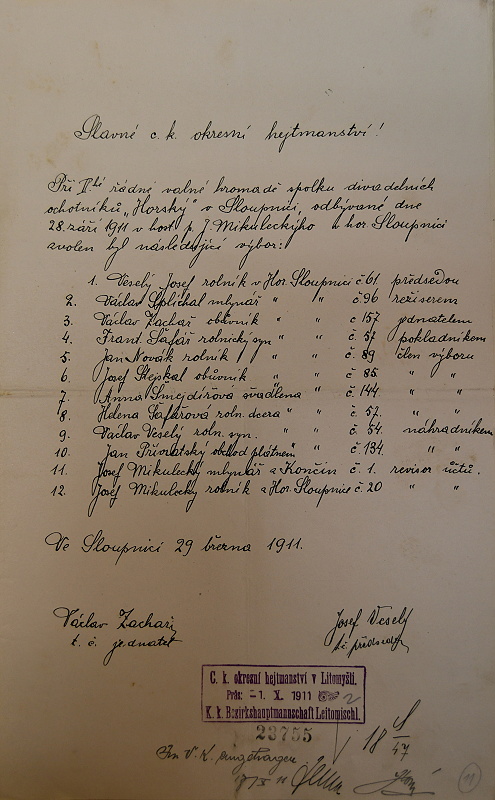 Slavné c. k. okresní hejtmanství!
Při IIhé řádné valné hromadě spolku divadelních
ochotníků „Horský" v Sloupnici, odbývané dne
28. září 1911 v host. p. J. Mikuleckýho v hor. Sloupnici
zvolen byl následující výbor:
1. Veselý Josef rolník v Hor. Sloupnici č. 61. předsedou
2. Václav Splíchal mlynář " " č. 96 režiserem
3. Václav Zachař obuvník " " č. 157. jednatelem
4. Frant. Šafář rolnický syn " " č. 57 pokladníkem
5. Jan Novák rolník " " č. 89 člen výboru
6. Josef Stejskal obuvník " " č. 85. " "
7. Anna Šmejdířova švadlena " č. 144 " "
8. Helena Šafářova roln. dcera " " č. 57. " "
9. Václav Veselý roln. syn. " " č. 54. náhradníkem
10. Jan Přívratský obchod plátnem " č. 134. " "
11. Josef Mikulecký mlynář z Končin č. 1. revisor účtů.
12. Josef Mikulecký rolník z Hor. Sloupnice č. 20 " "
Ve Sloupnici 29 března 1911.
Václav Zachař
t. č. jednatel
Josef Veselý
t. č. předseda
C. k. okresní hejtmanství v Litomyšli.
Präs: -1. X. 1911 2
K. k. Bezirkshauptmannschaft Leitomischl.
23755
18
47
Im V. K. eingetragen
11